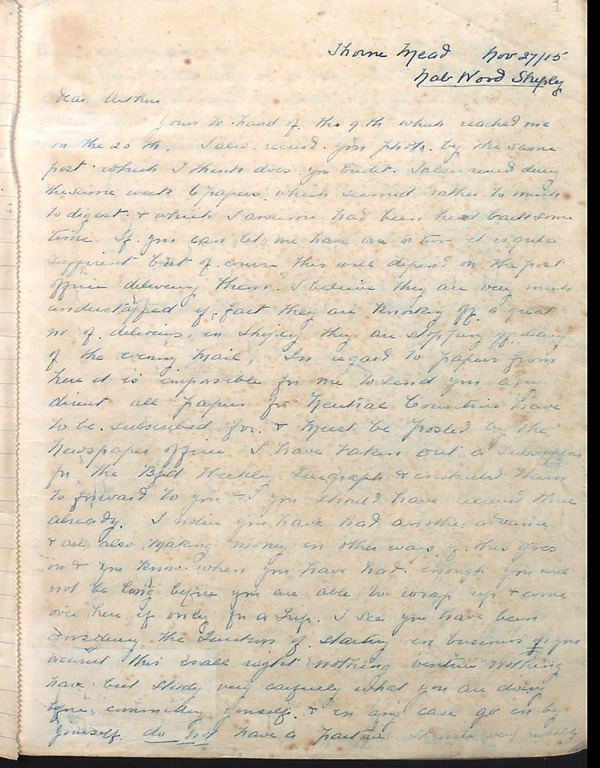 Thorne Mead Nov 27/15
Nab Wood Shipley
Dear Arthur
Yours to hand of the 9th which reached me
on the 20th. I also recvd. your photo. by the same
post. which I think does you credit. I also recvd during
the same week 6 papers. which seemed rather to much
to digest. & which I assume had been held back some
time. If you can let me have one or two it is quite
sufficient but of course this will depend on the post
office delivering them. I believe they are very much
understaffed in fact they are knocking off a great
no of. deliveries, in Shipley they are stopping off delivery
of the evening mail, In regard to papers from
here it is impossible for me to send you any
direct all papers for Neutral Countries have
to be. subscribed for. & must be posted by the
Newspaper office I have taken out a subscription
for the Bfd Weekly Telegraph & instructed them
to forward to you & you should have received three
already. I notice you have had another advance
& are also making money in other ways if this goes
on & you know when you have had enough you will
not be long before you are able to wrap up & come
over here if only for a trip. I see you have been
considering the question of starting in business of your
account this is all right nothing venture nothing
have but study very carefully what you are doing
before committing yourself. & in any case go in by
yourself do not have a partner